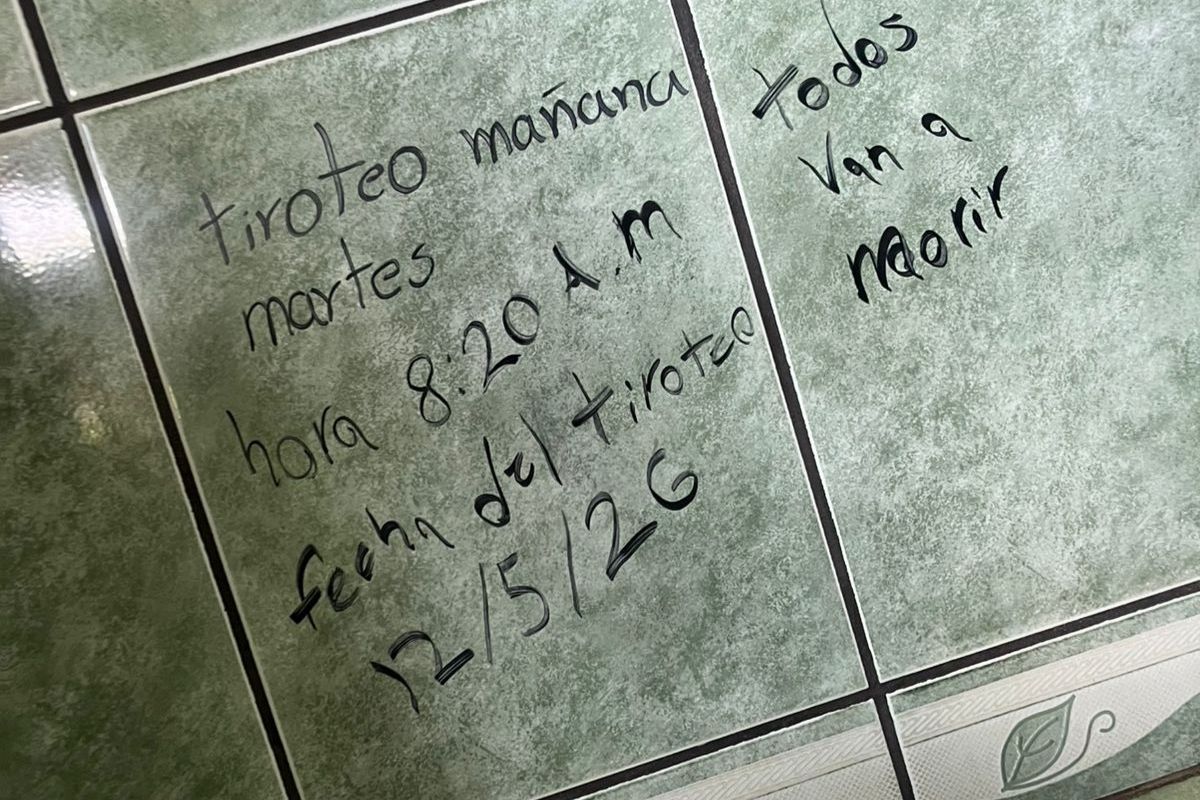 tiroteo mañana
martes
hora 8:20 A.m
fecha del tiroteo
12/5/26
todos
van a
morir